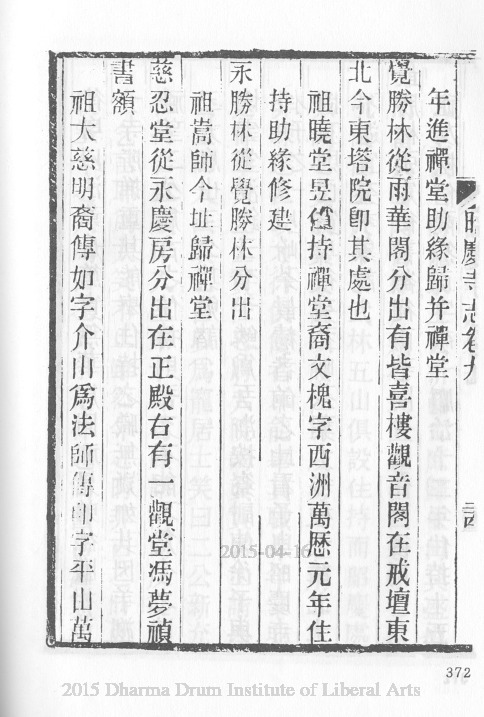 昭慶寺志卷九
年進禪堂助緣歸并禪堂
覺勝林從雨華閣分出有皆喜樓觀音閣在戒壇東
北今東塔院卽其處也
祖曉堂昱住持禪堂裔文槐字西洲萬歷元年住
持助緣修建
永勝林從覺勝林分出
祖嵩師今址歸禪堂
慈忍堂從永慶房分出在正殿右有一觀堂馮夢禎
書額
祖大慈明裔傳如字介山爲法師傳印字平山萬
2015-04-16
372
2015 Dharma Drum Institute of Liberal Arts